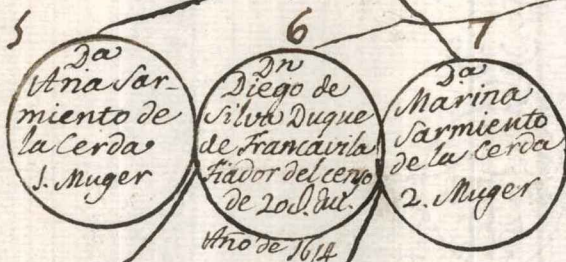 5
Da
Ana Sar-
miento de
la Cerda
1. Muger
6
Dn
Diego de
Silva Duque
de Francavila
Fiador del censo
de 20d. duc.
Año de 1614
7
Da
Marina
Sarmiento
de la Cerda
2. Muger